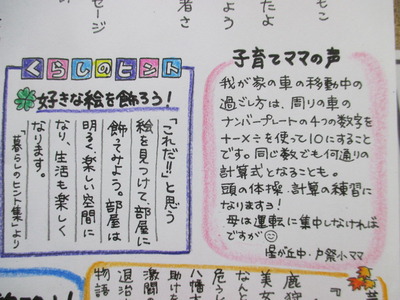 モン
たよ
よう
者さ
セージ
くらしのヒント
好きな絵を飾ろう！
「これだ!!」と思う
絵を見つけて、部屋に
飾ってみよう。部屋は
明るく楽しい空間に
なり、生活も楽しく
なります。
「暮らしのヒント集」より
子育てママの声
我が家の車の移動中の
過ごし方は、周りの車の
ナンバープレートの４つの数字を
＋−×÷を使って１０にすること
です。同じ数でも何通りの
計算式となることも。
頭の体操、計算の練習に
なりますョ！
母は運転に集中しなければ
ですが☺
陽が丘中・戸祭小ママ
鹿
美女
なんと
危うし
八幡
助けを
激闘の
退治
物語